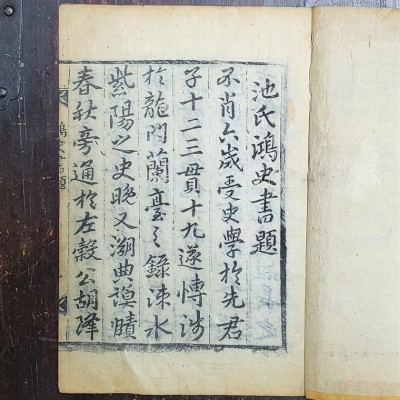 池氏鴻史書題
不肖六歲受史學於先君
子十二三貫十九遂慱涉
於龍門蘭臺之錄涑水
紫陽之史晚又溯典謨賾
春秋旁通於左穀公胡降
鴻史書題